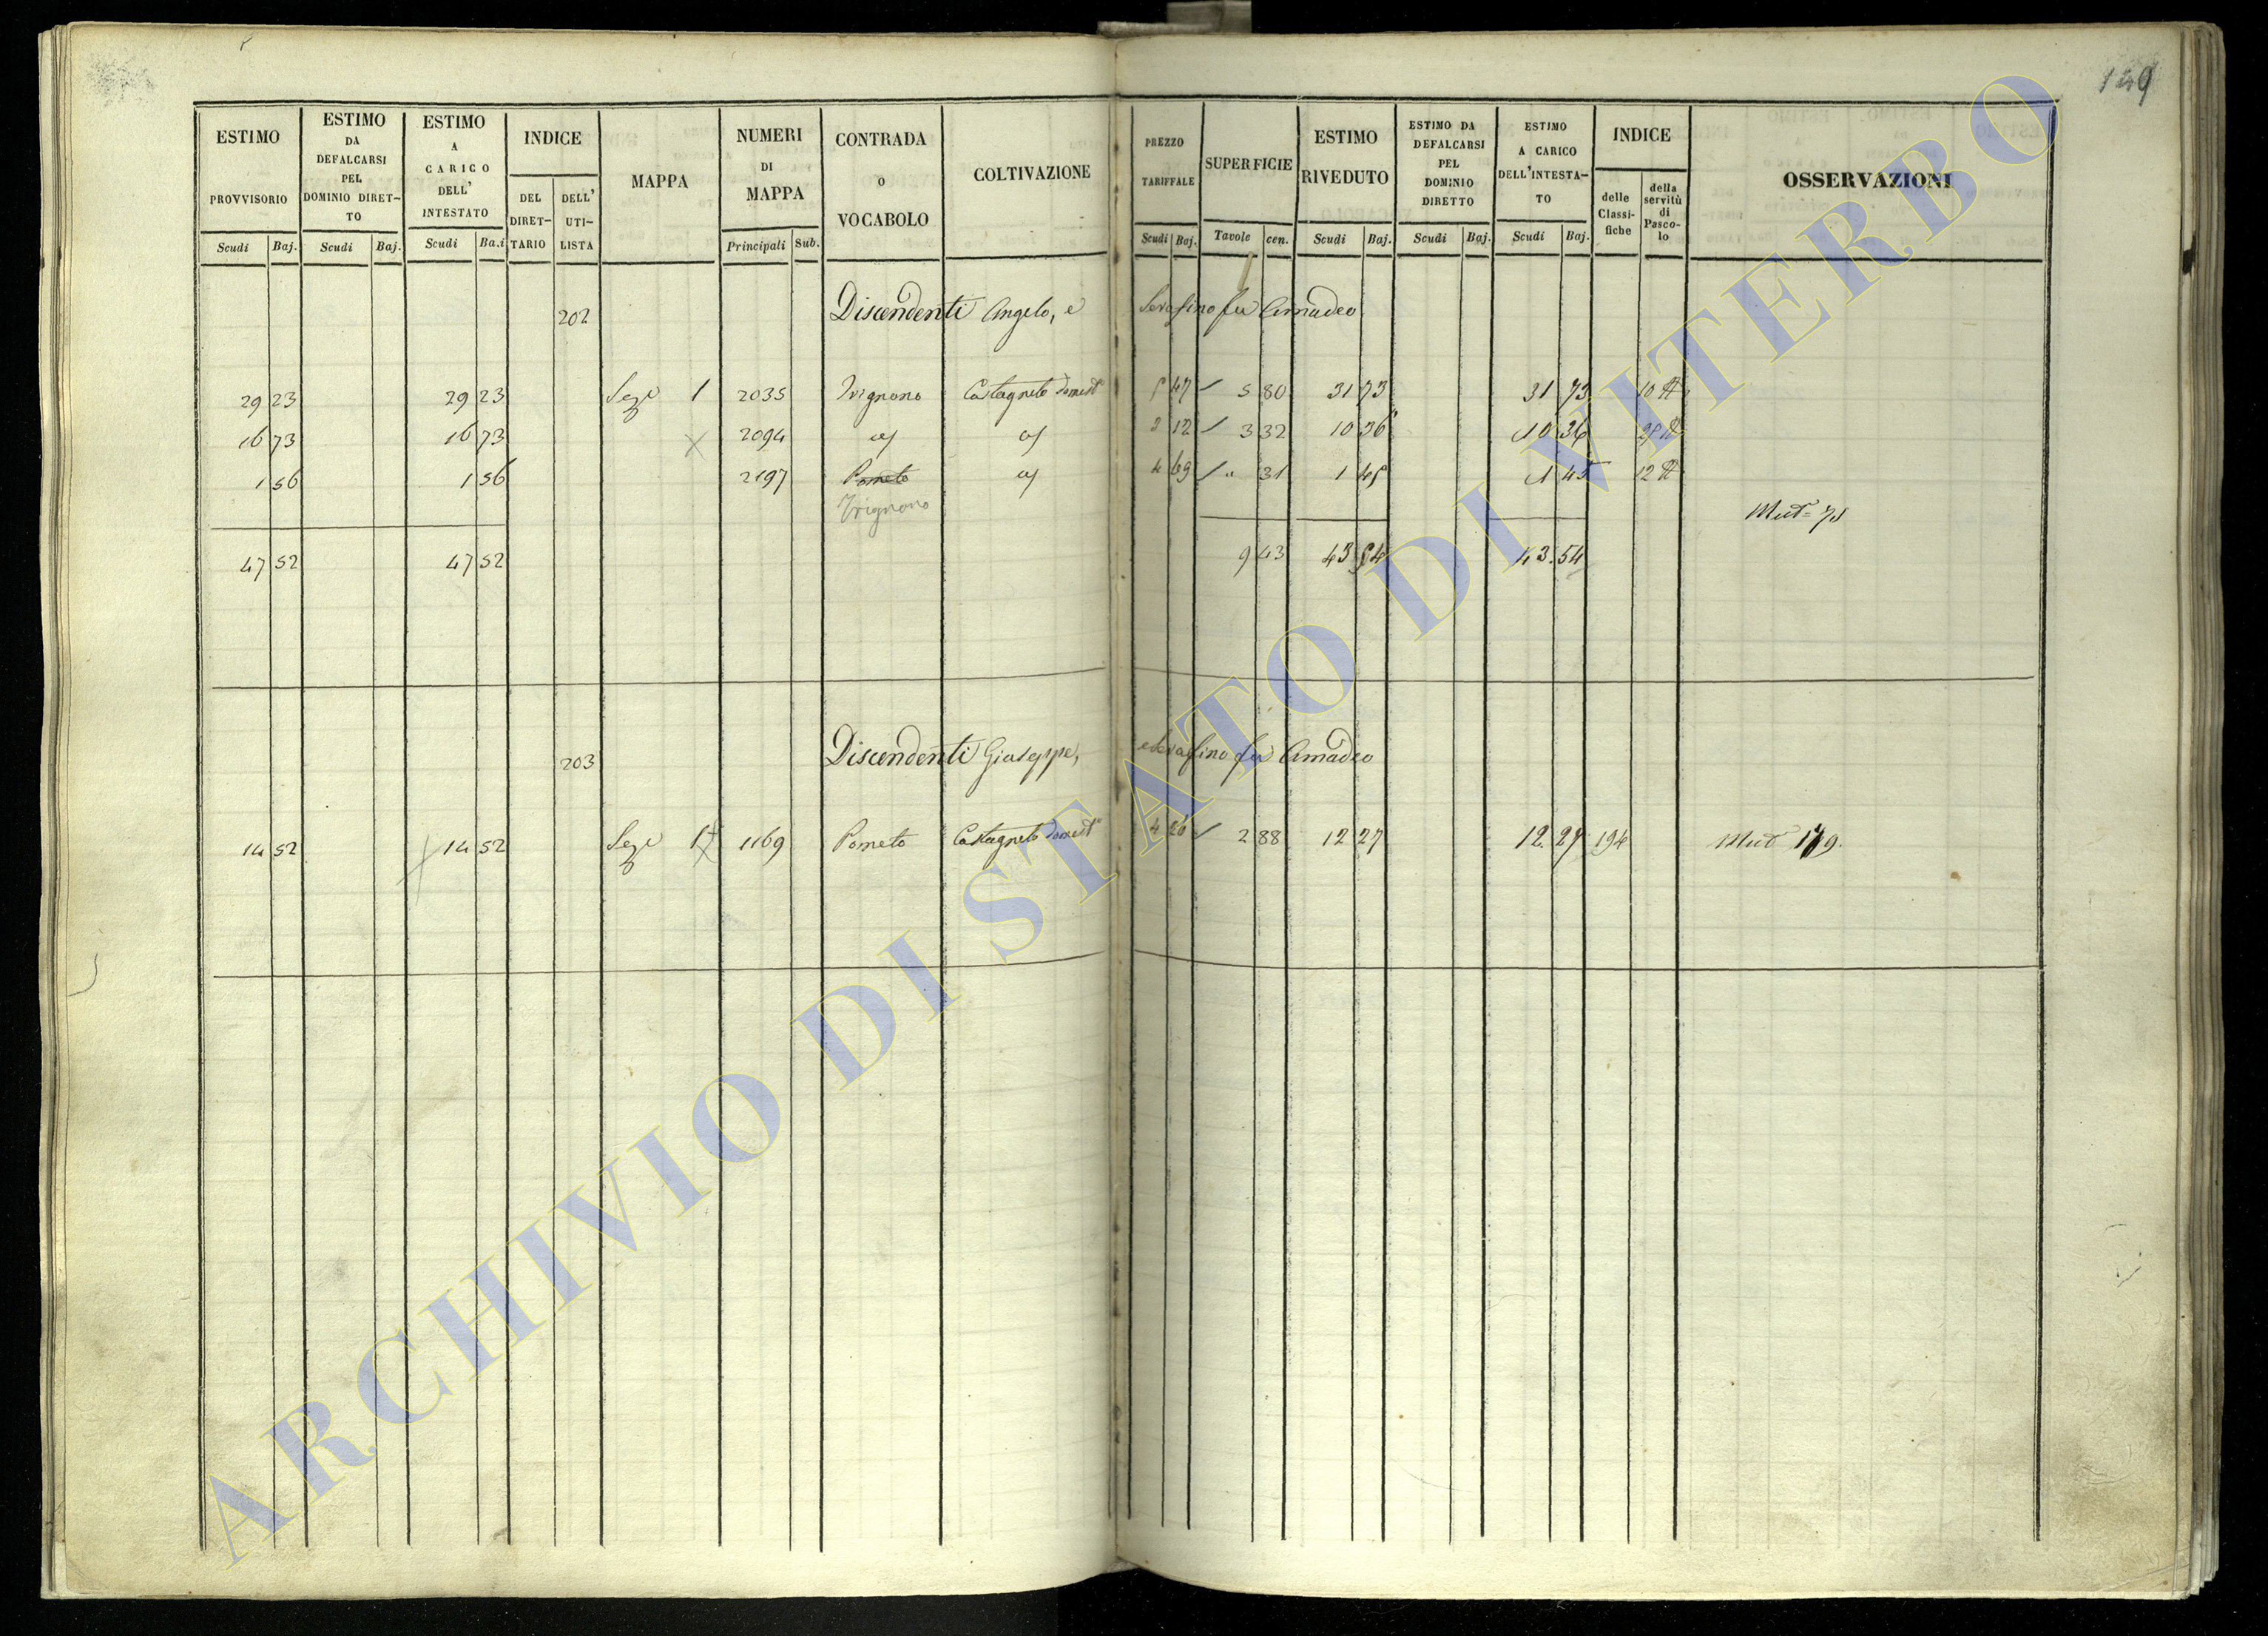 149
ESTIMO PROVVISORIO Scudi Baj.
ESTIMO DA DEFALCARSI PEL DOMINIO DIRET-TO Scudi Baj.
ESTIMO A CARICO DELL' INTESTATO Scudi Ba.i
INDICE DEL DIRET-TARIO DELL' UTI-LISTA
MAPPA
NUMERI DI MAPPA Principali Sub.
CONTRADA O VOCABOLO
COLTIVAZIONE
PREZZO TARIFFALE Scudi Baj.
SUPERFICIE Tavole cen.
ESTIMO RIVEDUTO Scudi Baj.
ESTIMO DA DEFALCARSI PEL DOMINIO DIRETTO Scudi Baj.
ESTIMO A CARICO DELL'INTESTA-TO Scudi Baj.
INDICE delle Classi-fiche della servitù di Pasco-lo
OSSERVAZIONI
202 Discendenti Angelo, e Serafino fu Amadeo
29 23 29 23 Sez. 1 2035 Trignano Castagneto Domest. 5 47 5 80 31 73 31 73 10
16 73 16 73 2094 3 12 3 32 10 36 10 36
1 56 1 56 2197 Pometo 4 69 " 31 1 45 1 45 12
Trignano
Mut
47 52 47 52 9 43 43 54 43.54
203 Discendenti Giuseppe, e Serafino fu Amadeo
14 52 14 52 Sez. 1 1169 Pometo Castagneto Domest. 4 26 2 88 12 27 12.27 194 Mut 179.
ARCHIVIO DI STATO DI VITERBO